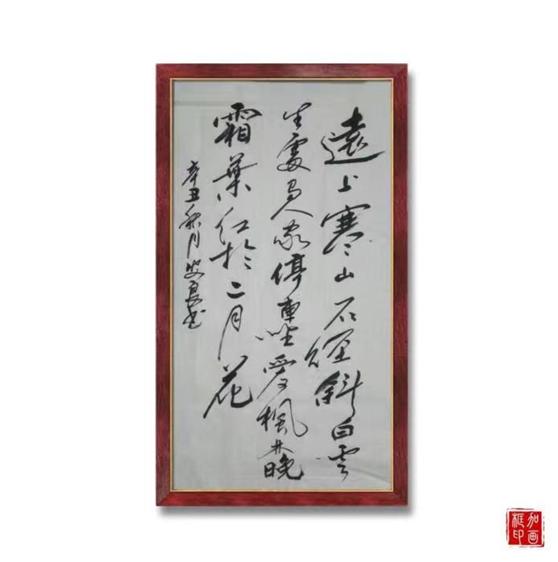 遠上寒山石徑斜白雲
生處有人家停車坐愛楓林晚
霜葉红於二月花
辛丑秋月
加画
框印